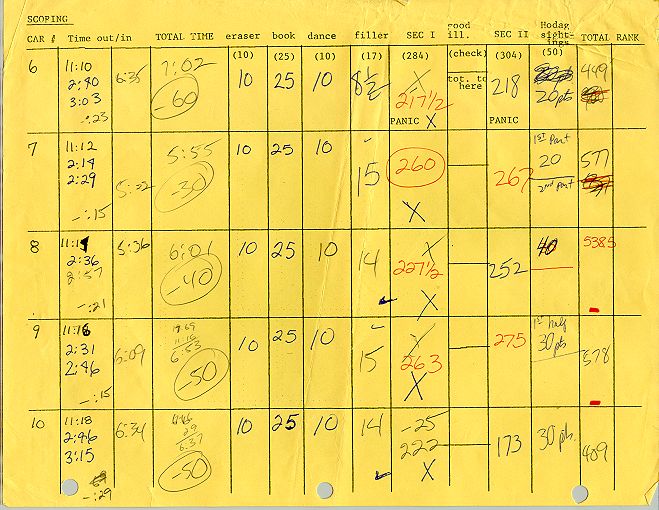 SCORING
CAR # Time out/in TOTAL TIME eraser book dance filler SEC I good ill. SEC II Hodag sight-ings TOTAL RANK
(10) (25) (10) (17) (284) (check) (304) (50)
6 11:10 6:35 7:02 10 25 10 8½ X tot. to here 218 499
2:40 -60 217½ 20pts
3:03 PANIC X PANIC
-:23
7 11:12 5:55 10 25 10 - 1st Part 577
2:14 -30 15 260 267 20
2:29 2nd Part
-:15 X
8 5:36 6:01 10 25 10 14 X 252 40 538.5
2:36 -40 227½
2:57 X
-:21
9 6:09 6:53 10 25 10 - X 275 1st half 578
2:31 -50 15 263 30pts
2:46 X
-:15
10 11:18 6:34 6:37 10 25 10 14 -25 173 30pts. 409
2:46 -50 222
3:15 X
-:29